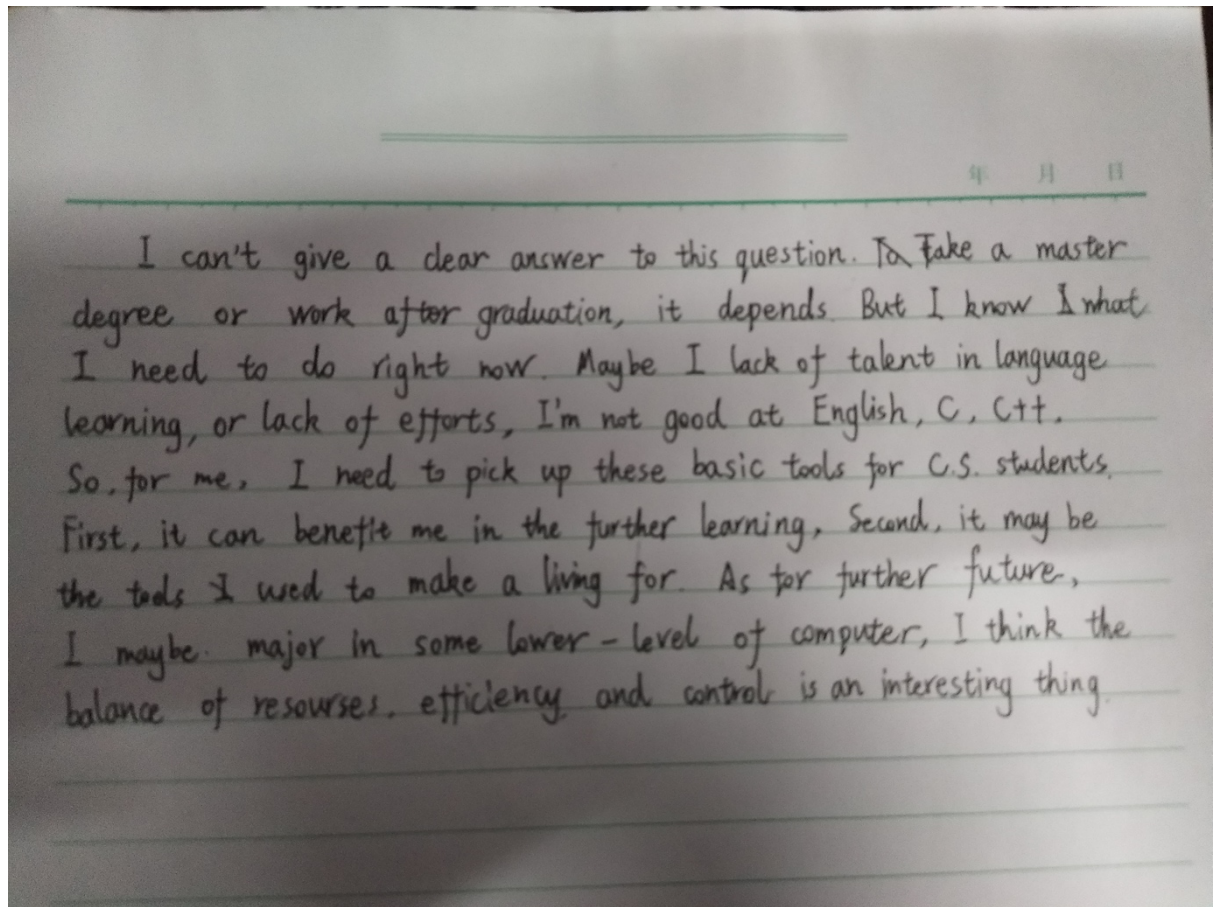 年 月 日
I can't give a clear answer to this question. Take a master
degree or work after graduation, it depends. But I know what
I need to do right now. Maybe I lack of talent in language
learning, or lack of efforts, I'm not good at English, C, C++.
So, for me, I need to pick up these basic tools for C.S. students.
First, it can benefit me in the further learning, Second, it may be
the tools I used to make a living for. As for further future,
I maybe major in some lower-level of computer, I think the
balance of resourses, efficiency and control is an interesting thing.